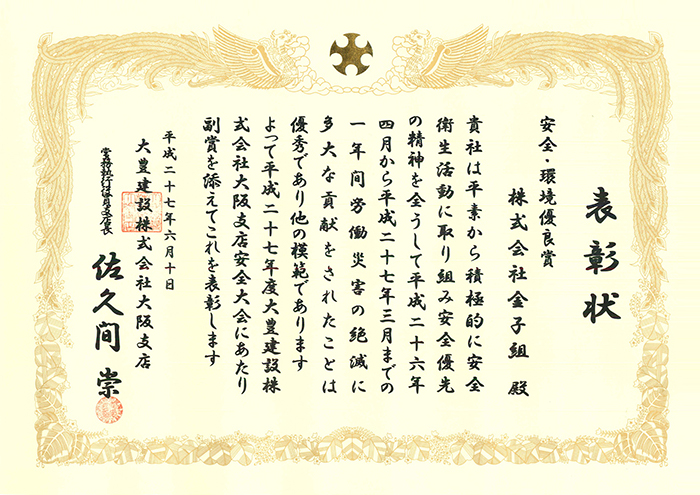 表彰状
安全・環境優良賞
株式会社金子組 殿
貴社は平素から積極的に安全
衛生活動に取り組み安全優先
の精神を全うして平成二十六年
四月から平成二十七年三月までの
一年間労働災害の絶滅に
多大な貢献をされたことは
優秀であり他の模範であります
よって平成二十七年度大豊建設株
式会社大阪支店安全大会にあたり
副賞を添えてこれを表彰します
平成二十七年六月十日
大豊建設株式会社大阪支店
常務執行役員支店長
佐久間 崇